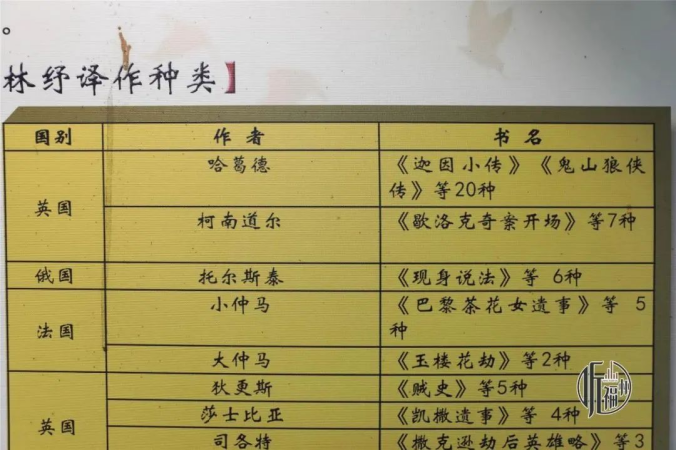 。
林纾译作种类】
国别 作者 书名
英国 哈葛德 《迦因小传》《鬼山狼侠
传》等20种
柯南道尔 《歇洛克奇案开场》等7种
俄国 托尔斯泰 《现身说法》等 6种
法国 小仲马 《巴黎茶花女遗事》等 5
种
大仲马 《玉楼花劫》等2种
英国 狄更斯 《贼史》等5种
莎士比亚 《凯撒遗事》等 4种
司各特 《撒克逊劫后英雄略》等3
福州